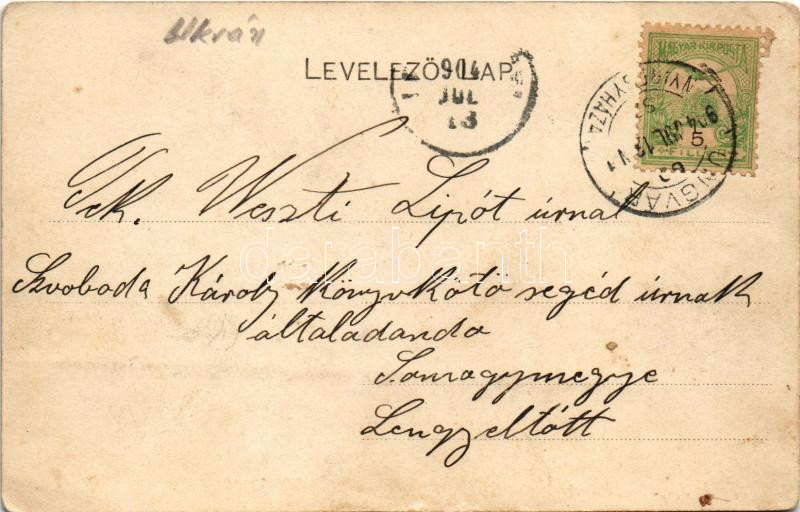 Ukrán
LEVELEZŐ-LAP.
904
JUL
13
MAGYAR·KIR·POSTA
5
FILLÉR
UNGVÁR
NYÍREGYHÁZA
904 JUL 13
63
Tek. Weszti Lipót úrnak
Szvoboda Károly könyvkötő segéd úrnak
általadanda
Somogymegye
Lengyeltótt
darabanth